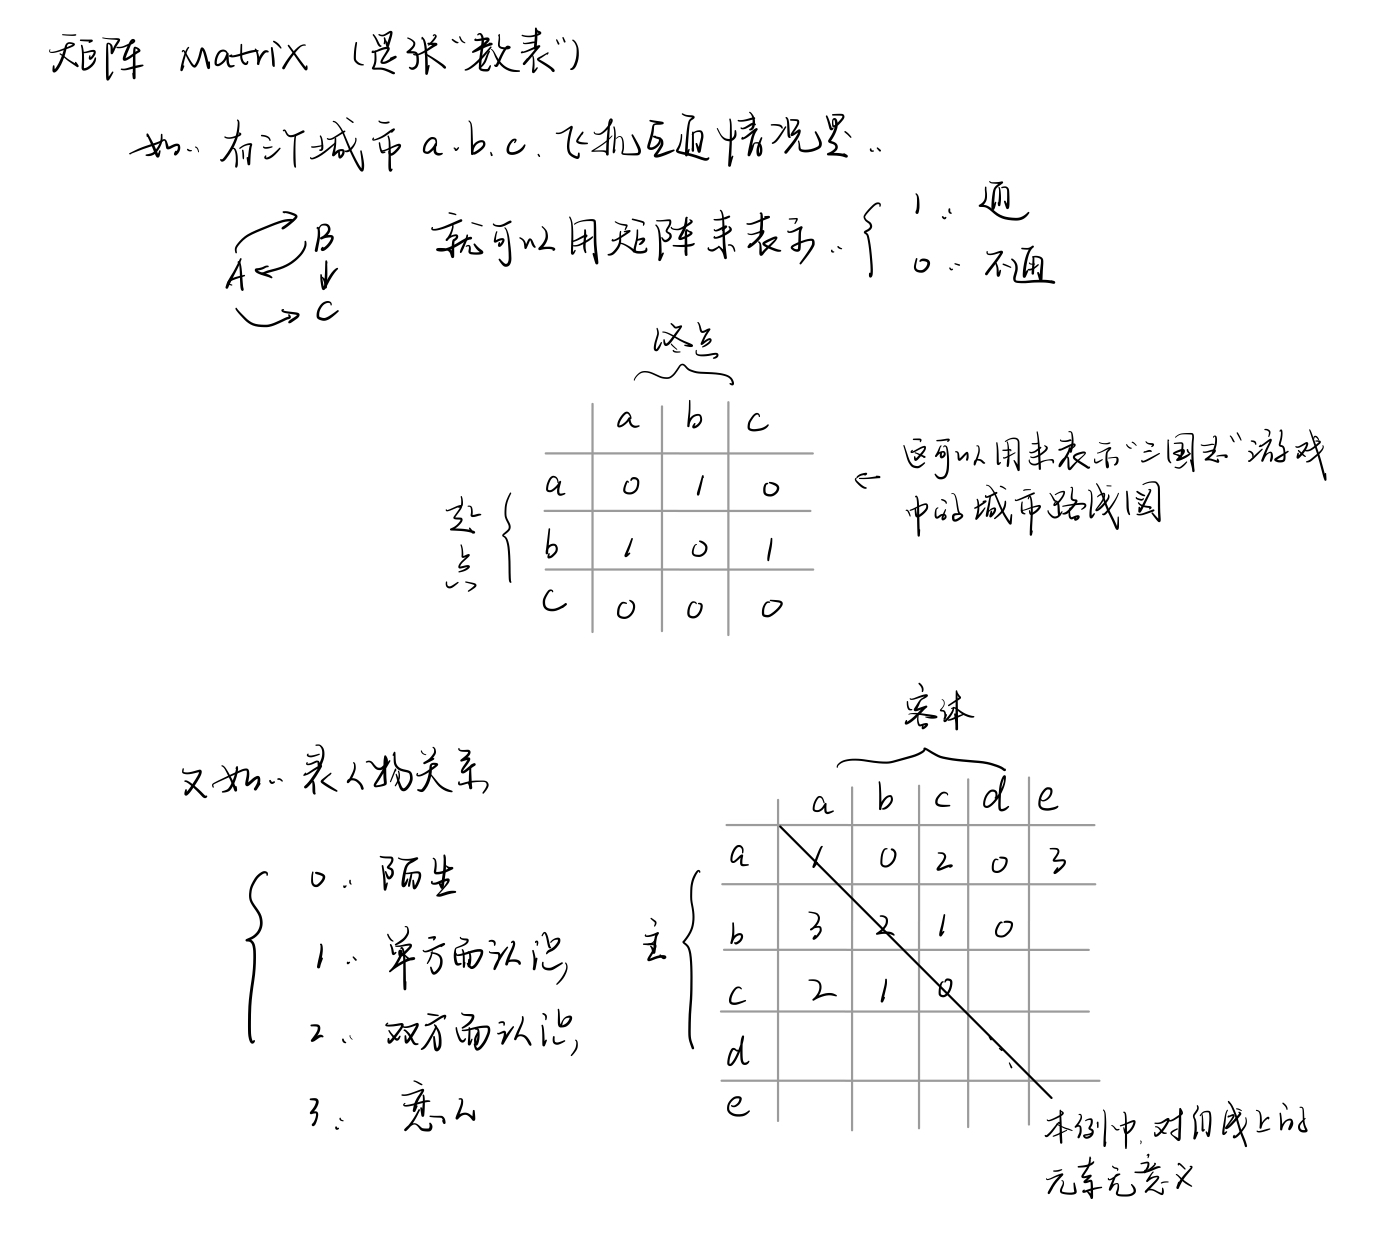 矩阵 Matrix (是张“数表”)
如.. 有三个城市 a.b.c. 飞机互通情况是..
就可以用矩阵来表示..
1.. 通
0.. 不通
A B C
终点
a b c
起点
a 0 1 0
b 1 0 1
c 0 0 0
← 这可以用来表示“三国志”游戏
中的城市路线图
又如.. 表人物关系
0.. 陌生
1.. 单方面认识
2.. 双方面认识
3.. 恋人
客体
a b c d e
主
a 1 0 2 0 3
b 3 2 1 0
c 2 1 0
d
e
本例中,对角线上的
元素无意义